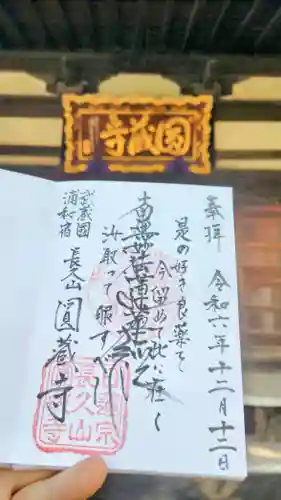 寺蔵圓
奉拝 令和六年十二月十二日
是の好き良薬を
今留めて此に在く
南無妙法蓮華経
汝取って服すべし
武蔵国
浦和宿
長久山 圓蔵寺